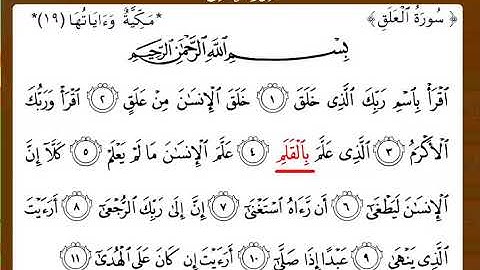 ﴿ سُورَةُ ٱلْعَلَقِ ﴾ *مَكِّيَّةٌ وَءَايَاتُهَا (١٩)*
بِسْمِ ٱللَّهِ ٱلرَّحْمَٰنِ ٱلرَّحِيمِ
ٱقْرَأْ بِٱسْمِ رَبِّكَ ٱلَّذِى خَلَقَ ١ خَلَقَ ٱلْإِنسَٰنَ مِنْ عَلَقٍ ٢ ٱقْرَأْ وَرَبُّكَ
ٱلْأَكْرَمُ ٣ ٱلَّذِى عَلَّمَ بِٱلْقَلَمِ ٤ عَلَّمَ ٱلْإِنسَٰنَ مَا لَمْ يَعْلَمْ ٥ كَلَّآ إِنَّ
ٱلْإِنسَٰنَ لَيَطْغَىٰٓ ٦ أَن رَّءَاهُ ٱسْتَغْنَىٰٓ ٧ إِنَّ إِلَىٰ رَبِّكَ ٱلرُّجْعَىٰٓ ٨ أَرَءَيْتَ
ٱلَّذِى يَنْهَىٰ ٩ عَبْدًا إِذَا صَلَّىٰٓ ١٠ أَرَءَيْتَ إِن كَانَ عَلَى ٱلْهُدَىٰٓ ١١